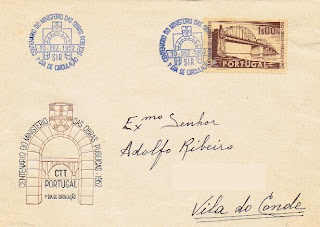 CENTENÁRIO DO MINISTÉRIO DAS OBRAS PÚBLICAS
10. DEZ. 1952
SIR
1º DIA DE CIRCULAÇÃO
CENTENÁRIO DO MINISTÉRIO DAS OBRAS PÚBLICAS
10. DEZ. 1952
SIR
1º DIA DE CIRCULAÇÃO
1$00
PORTUGAL
CENTENÁRIO DO MINISTÉRIO DAS OBRAS PÚBLICAS 1952
CTT
PORTUGAL
1º DIA DE CIRCULAÇÃO
Exmo Senhor
Adolfo Ribeiro
Vila do Conde